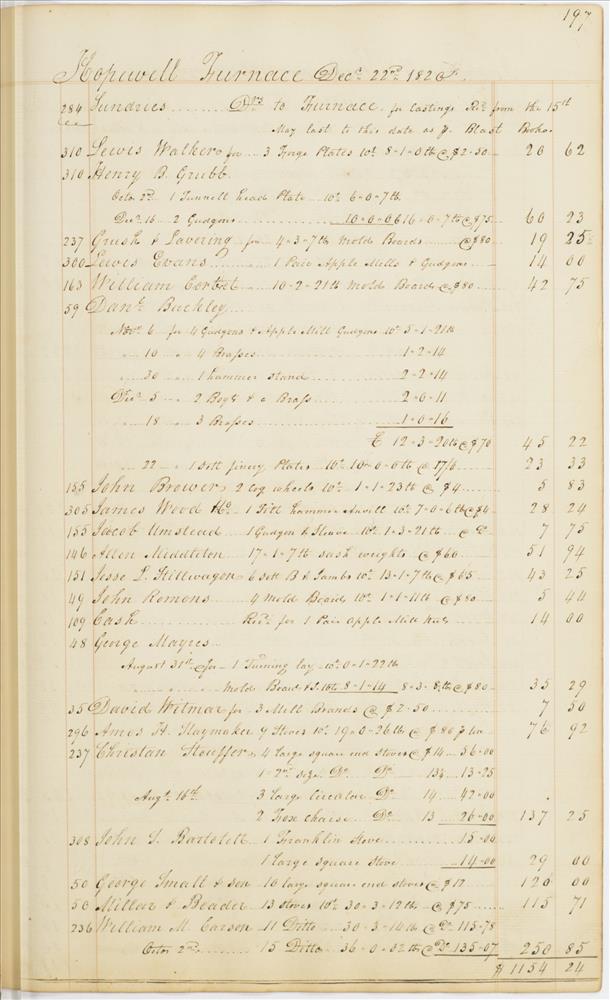 197
Hopewell Furnace Decr 22nd 1826
284 Sundries Drs to Furnace for Castings Recd from the 15th
May last to this date as pr Blast Books
310 Lewis Walker for 3 Forge Plates wt 8-1-0 lb @ $2-50 20 62
310 Henry B Grubb
Octor 2nd 1 Tunnell head Plate wt 6-0-7 lb
Decr 16 2 Gudgeons 10-0-0 16-0-7 lb @ $75 60 23
237 Grish & Lavering for 4-3-7 lb Mold Boards @ $80 19 25
300 Lewis Evans 1 Pair Apple Mills & Gudgeons 14 00
163 William 10-2-21 lb Mold Boards @ $80 42 75
59 Danl Buckley
Novr 6 for 4 Gudgeons & Apple Mill Gudgeons wt 5-1-21 lb
" 10 " 4 Brasses 1-2-14
" 30 " 1 hammer stand 2-2-14
Decr 5 " 2 Boys & a Brass 2-0-11
" 18 " 3 Brasses 1-0-16
12-3-20 lb @ $70 45 22
" 22 " 1 Sett finery Plates wt 10-0-0 lb @ 17/6 23 33
155 John Brower 2 Cog wheels wt 1-1-23 lb @ $4 5 83
305 James Wood 1 Tilt hammer Anvill wt 7-0-6 lb @ $4 28 24
155 Jacob Umstead 1 Gudgeon & Sleave wt 1-3-21 lb @ Do 7 75
146 Allen Middleton 17-1-7 lb sash weights @ $60 51 94
151 Jesse P. Stillwagon 6 Sett B & Jambs wt 13-1-7 lb @ $65 43 25
49 John Romons 4 Mold Boards wt 1-1-11 lb @ $80 5 44
109 Cash Recd for 1 Pair Apple Mill Nuts 14 00
48 George Mayres
August 31st for 1 Turning lay wt 0-1-22 lb
" Mold Boards 8-1-14 8-3-8 lb @ $80 35 29
35 David Witmar for 3 Mill Brands @ $2-50 7 50
296 Amos H. Slaymaker 9 Stoves wt 19-0-26 lb @ $80 pr ton 76 92
237 Christan Stouffer 4 large square end stoves @ $14 56-00
1-2nd size Do Do 13¼ 13-25
Augt 16th 3 large Circular Do 14 42-00
2 Do 13 26-00 137 25
308 John S. Bartolett 1 Franklin Stove 15-00
1 large square Stove 14-00 29 00
50 George Smalt & Son 10 large square end stoves @ $12 120 00
50 Millar & Beader 13 stoves wt 30-3-12 lb @ $75 115 71
236 William M. Carson 11 Ditto 30-3-14 lb @ Do 115-78
Octor 2nd 15 Ditto 36-0-02 lb @ Do 135-07 250 85
$ 1154 24